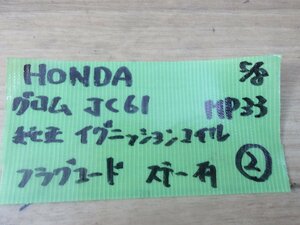 HONDA 5/8
グロム JC61 MP33
純正 イグニッションコイル
プラグコード ステー 有 ②